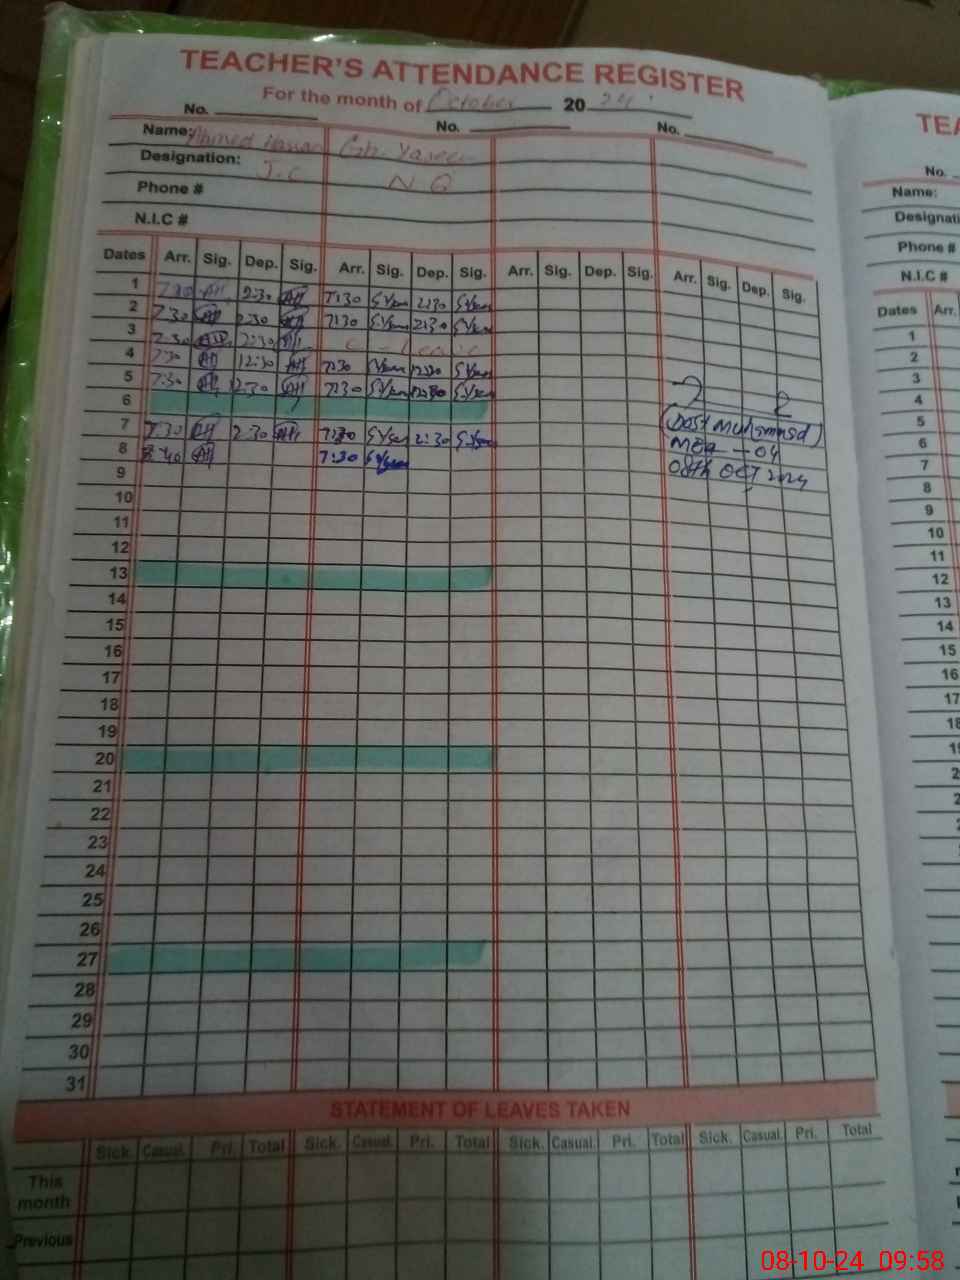 TEACHER'S ATTENDANCE REGISTER
For the month of October 20 24
No. No. No.
Name: Ahmed Hassan Gh. Yaseen
Designation: J.C N.Q
Phone #
N.I.C #
Dates Arr. Sig. Dep. Sig. Arr. Sig. Dep. Sig. Arr. Sig. Dep. Sig. Arr. Sig. Dep. Sig.
1 7:30 AH 2:30 AH 7:30 2:30
2 7:30 AH 2:30 AH 7:30 2:30
3 7:30 AH 2:30 AH C - Leave
4 7:30 AH 12:30 AH 7:30 12:30
5 7:30 AH 12:30 AH 7:30 12:30
6
7 7:30 AH 2:30 AH 7:30 2:30
8 AH 7:30
9
10
11
12
13
14
15
16
17
18
19
20
21
22
23
24
25
26
27
28
29
30
31
2 2
(Dost Muhammad)
MEA - 04
08th OCT 2024
STATEMENT OF LEAVES TAKEN
Sick. Casual. Pri. Total Sick. Casual. Pri. Total Sick. Casual. Pri. Total Sick. Casual. Pri. Total
This
month
Previous
TEA
No.
Name:
Designati
Phone #
N.I.C #
Dates Arr.
1
2
3
4
5
6
7
8
9
10
11
12
13
14
15
16
17
18
08-10-24 09:58